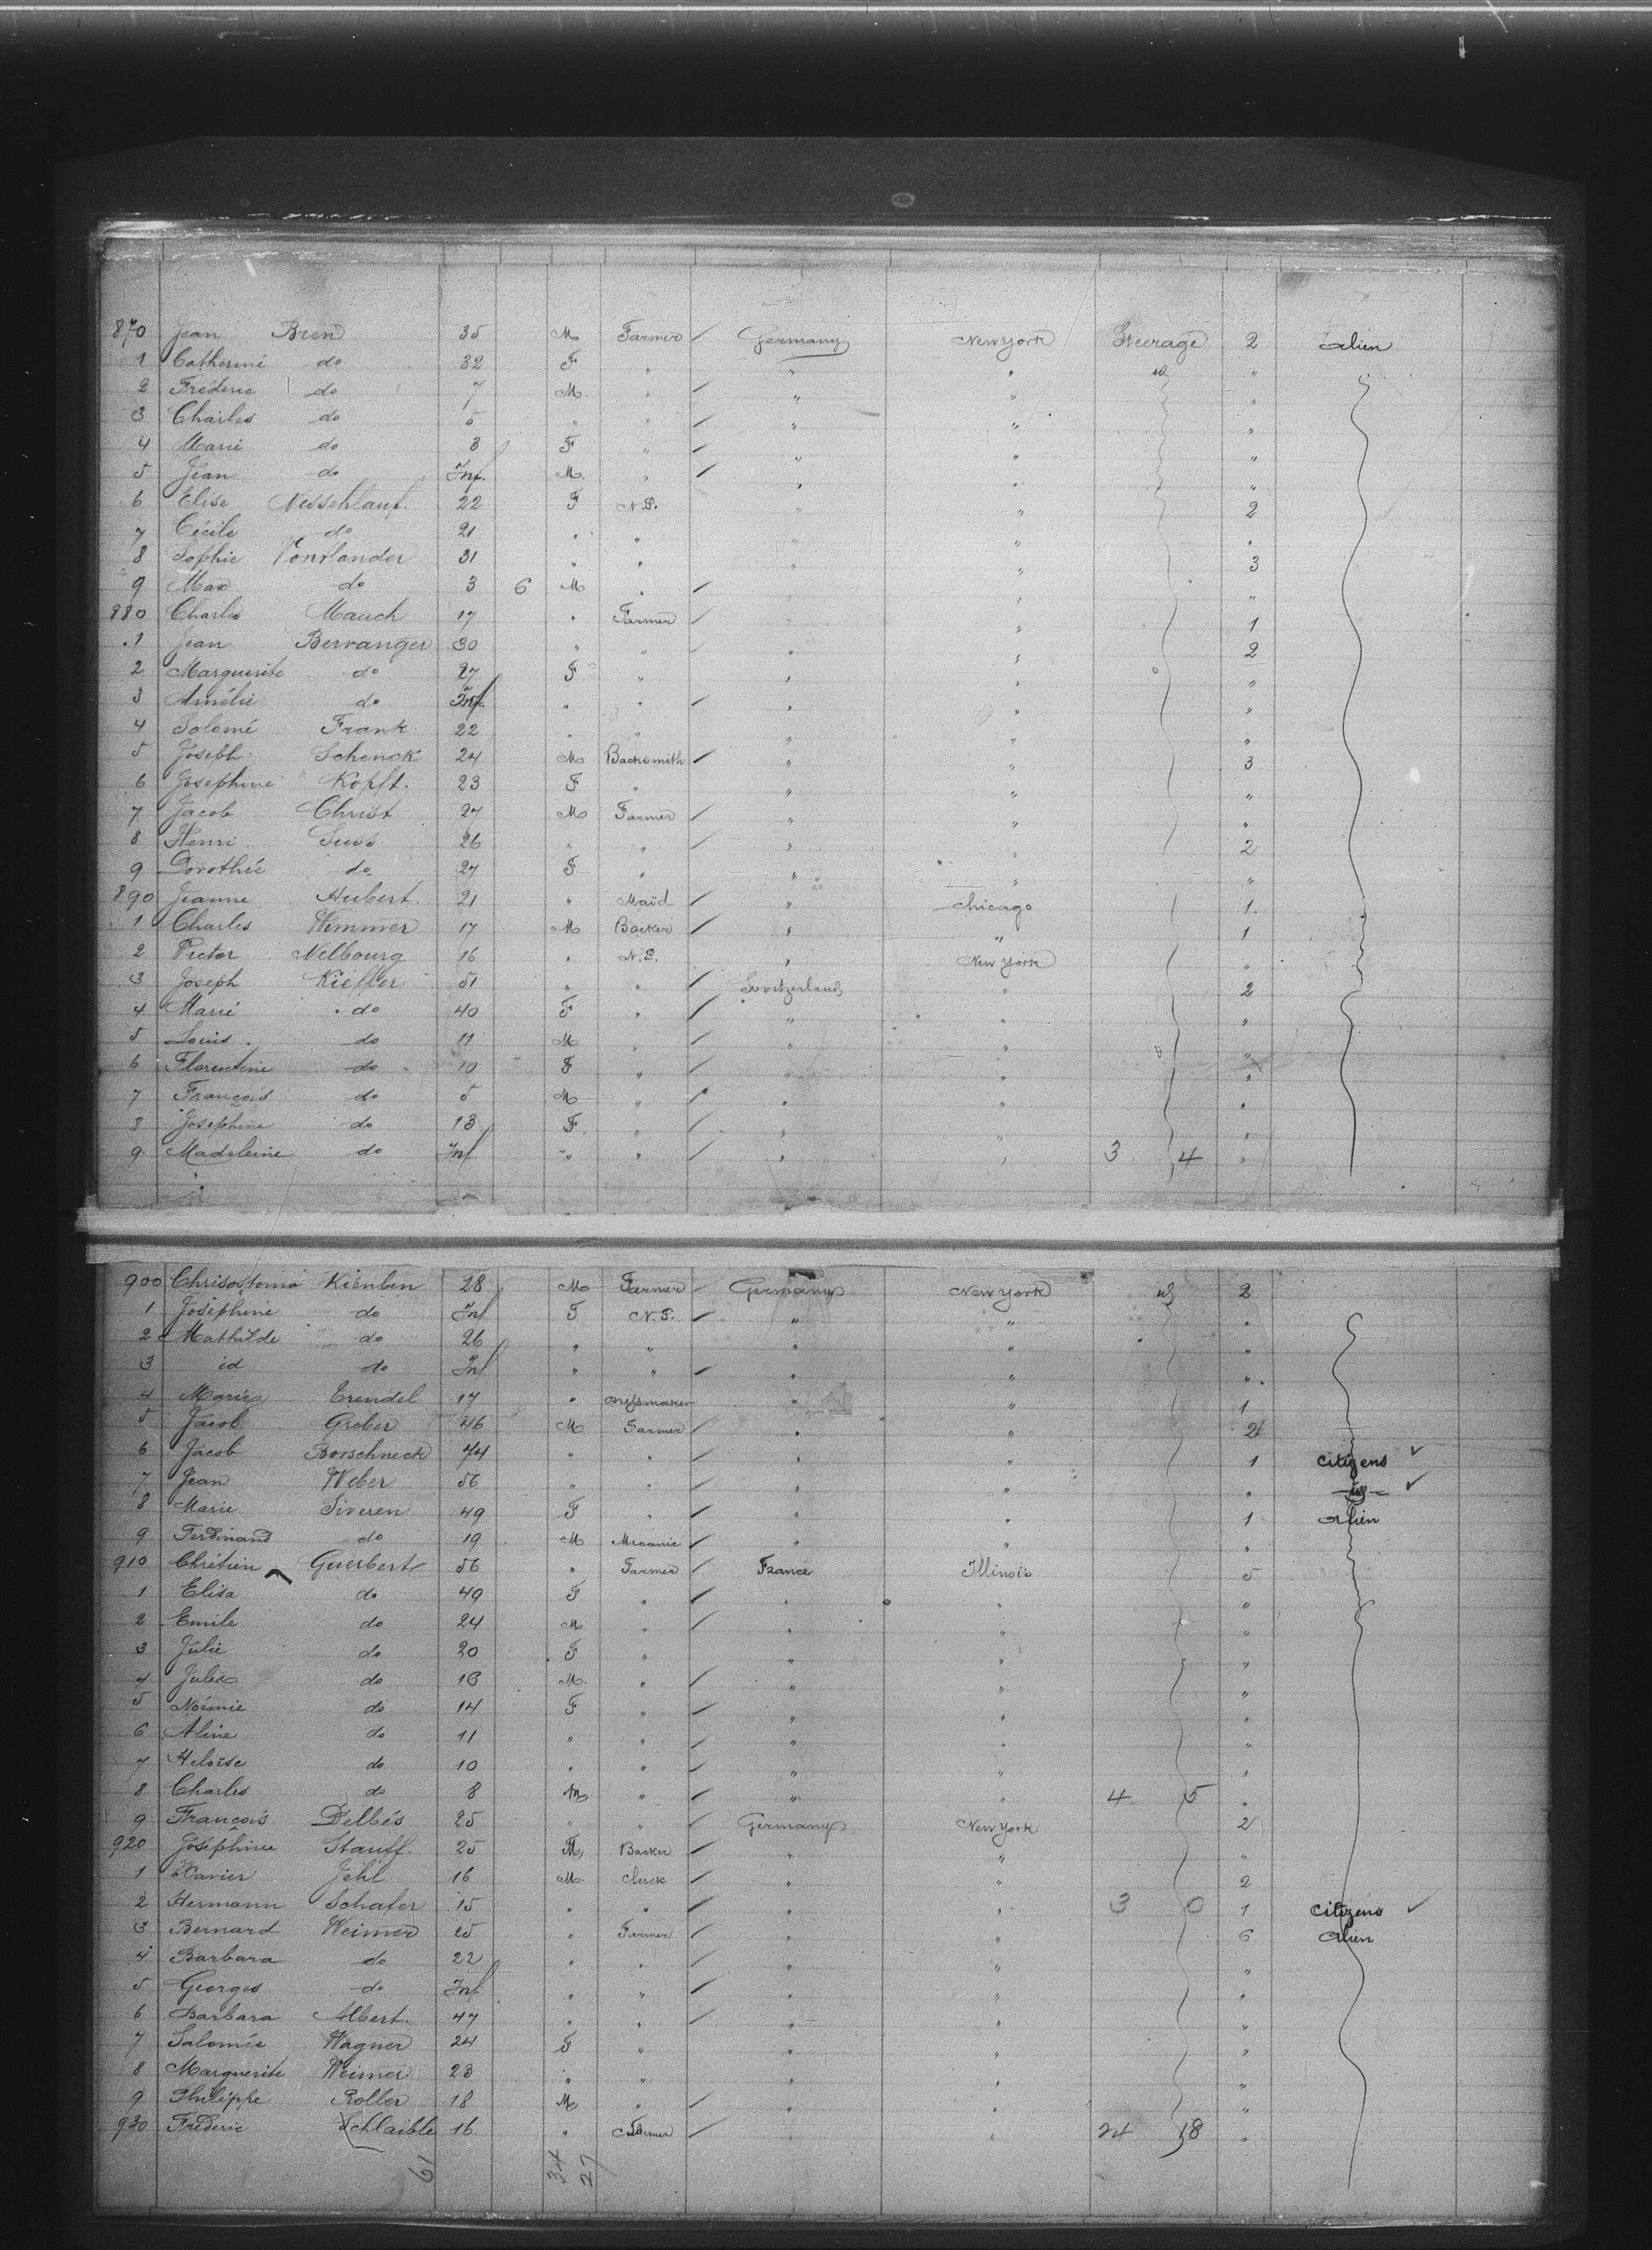 870 Jean Brend 35 M Farmer Germany New York Steerage 2 alien
1 Catherine do 32 F " " " id "
2 Fréderic do 7 M " " " "
3 Charles do 5 " " " " "
4 Marie do 3 F " " " "
5 Jean do Inf. M. " " " "
6 Elise Nesschlauf. 22 F N.P. " " 2
7 Cécile do 21 " " " " "
8 Sophie Vonrlander 31 " " " " 3
9 Max do 3 6 M " " " "
880 Charles Mauch 17 " Farmer " " 1
1 Jean Bervanger 30 " " " " 2
2 Marguerite do 27 F " " " "
3 Amélie do Inf. " " " " "
4 Solomé Frank 22 " " " " "
5 Joseph Schenck 24 M Backsmith " " 3
6 Josephine Kopft. 23 F " " " "
7 Jacob Christ 27 M Farmer " " "
8 Henri Suss 26 " " " " 2
9 Dorothée do. 27 F " " " "
890 Jeanne Hubert 21 " Maid " Chicago 1
1 Charles Wimmer 17 M Backer " " 1
2 Victor Nelbourg 16 " N.P. " New York "
3 Joseph Kieffer 51 " " Switzerland " 2
4 Marie do 40 F " " " "
5 Louis do 11 M " " " "
6 Florentine do 10 F " " " "
7 François do 5 M " " " "
8 Josephine do 13 F " " " "
9 Madeleine do Inf " " " " 3 4 "
900 Chrisostome Kienben 28 M Farmer Germany New York id 2
1 Joséphine do Inf F N.P. " " "
2 Mathilde do 26 " " " " "
3 id do Inf " " " " "
4 Marie Erendel 17 " Dressmaker " " 1
5 Jacob Greber 46 M Farmer " " 2
6 Jacob Borschneck 74 " " " " 1 citizens
7 Jean Weber 56 " " " " "
8 Marie Siveren 49 F " " " 1 alien
9 Ferdinand do 19 M Mecanic " " "
910 Chrétien Guerbert 56 " Farmer France Illinois 5
1 Elisa do 49 F " " " "
2 Emile do 24 M " " " "
3 Julie do 20 F " " " "
4 Jules do 16 M. " " " "
5 Noémie do 14 F " " " "
6 Aline do 11 " " " " "
7 Heloïse do 10 " " " " "
8 Charles do 8 M " " " 4 5 "
9 François Delbés 25 " " Germany New York 2
920 Joséphine Stauff. 25 Backer " " "
1 Xavier Jehl 16 M. Clerck " " 2
2 Hermann Schafer 15 " " " " 3 0 1 citizens
3 Bernard Weimer 25 " Farmer " " 6 alien
4 Barbara do 22 " " " " "
5 Georges do Inf. " " " " "
6 Barbara Albert. 47 " " " " "
7 Salomée Wagner 24 F " " " "
8 Marguerite Weimer 23 " " " " "
9 Philippe Roller 18 M " " " "
930 Fréderic Schlaible 16 " Farmer " " 24 18 "
61 34 27